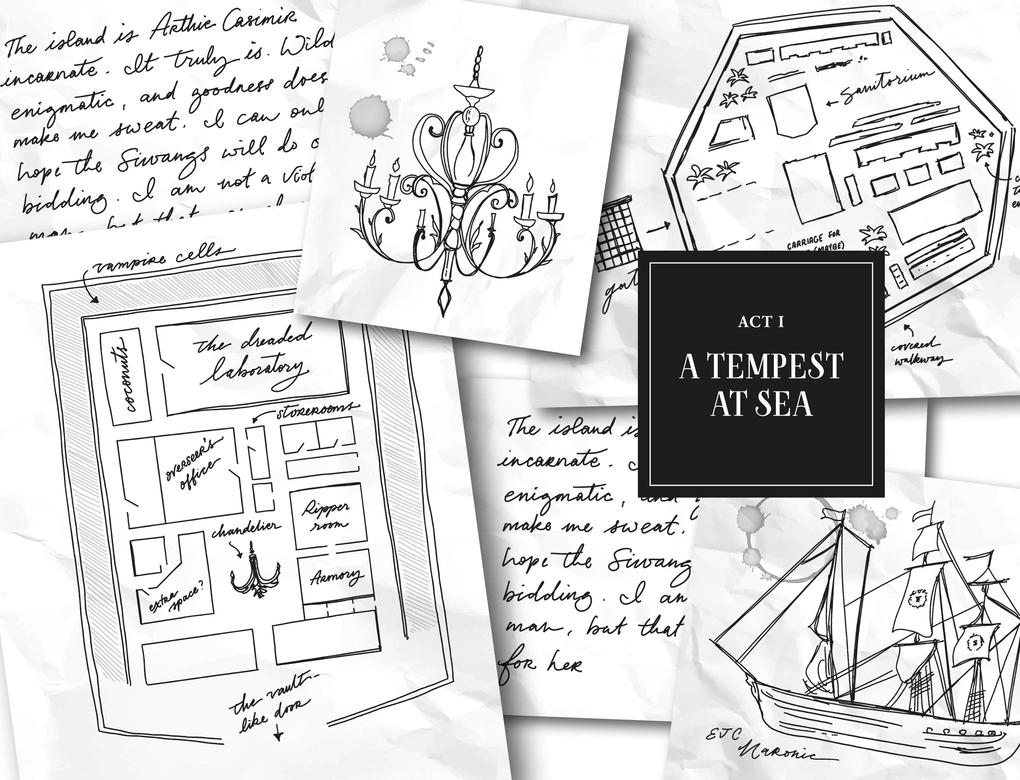 The island is Arthie Casimir
incarnate. It truly is. Wild
enigmatic, and goodness does
make me sweat. I can onl
hope the Siwangs will do
bidding. I am not a viol
man, but that
vampire cells
coconuts
the dreaded
laboratory
STOREROOMS
overseer's
office
Ripper
room
chandelier
Armory
extra
space?
the vault-
like door
Sanitorium
CARRIAGE FOR
(MAYBE)
covered
walkway
ACT I
A TEMPEST
AT SEA
The island is
incarnate.
enigmatic,
make me sweat.
hope the Siwang
bidding. I am
man, but that
for her
EJC
Naronic